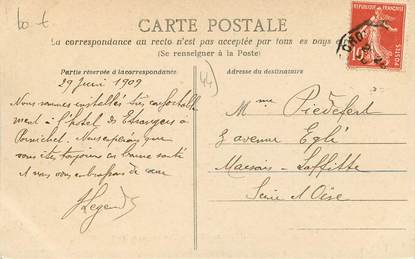 CARTE POSTALE
La correspondance au recto n'est pas acceptée par tous les pays
(Se renseigner à la Poste)
Partie réservée à la correspondance
Adresse du destinataire
44
REPUBLIQUE FRANÇAISE
10
POSTES
29 Juin 1909
Nous sommes installés très confortable
ment à l'hôtel des Etrangers à
Pornichet. Nous espérons que
vous êtes toujours en bonne santé
et nous vous embrassons de cœur
Mme Piedefert
3 avenue Eglé
Maisons-Laffitte
Seine et Oise